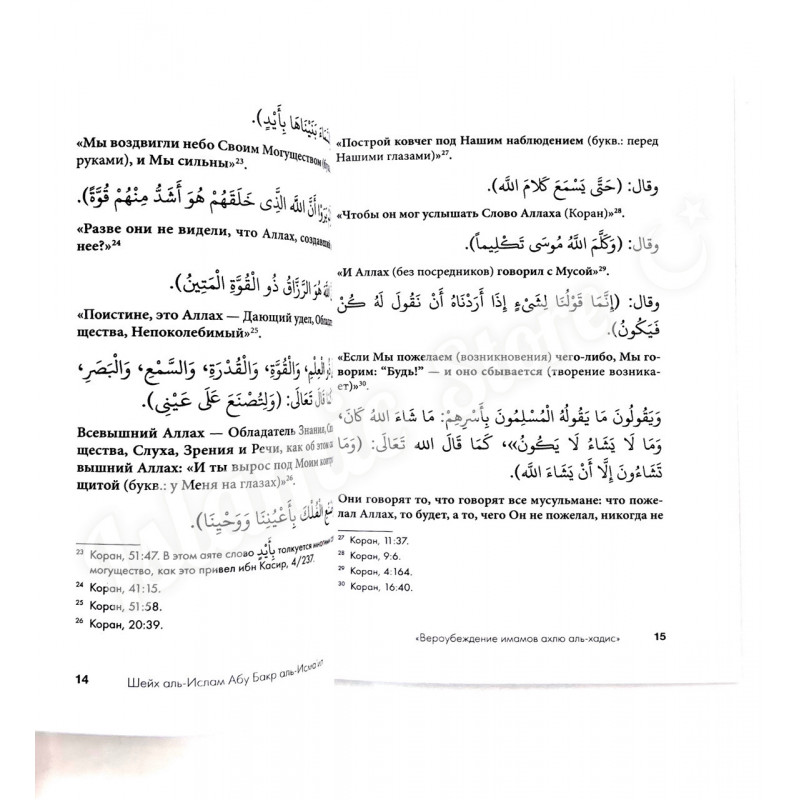 بَنَيْنَاهَا بِأَيْدٍ).
«Мы воздвигли небо Своим Могуществом
руками), и Мы сильны»²³.
أَنَّ اللَّه الَّذِى خَلَقَهُمْ هُوَ أَشَدُّ مِنْهُمْ قُوَّةً).
«Разве они не видели, что Аллах,
нее?»²⁴
هُوَ الرَّزَّاقُ ذُو الْقُوَّةِ الْمَتِينُ).
«Поистине, это Аллах — Дающий удел,
щества, Непоколебимый»²⁵.
الْعِلْمِ، وَالْقُوَّةِ، وَالْقُدْرَةِ، وَالسَّمْعِ، وَالْبَصَرِ،
قَالَ تَعَالَى: (وَلِتُصْنَعَ عَلَى عَيْنِي).
Всевышний Аллах — Обладатель Знания,
щества, Слуха, Зрения и Речи, как об этом
вышний Аллах: «И ты вырос под Моим
щитой (букв.: у Меня на глазах)»²⁶.
الْفُلْكَ بِأَعْيُنِنَا وَوَحْيِنَا).
23 Коран, 51:47. В этом аяте слово بِأَيْدٍ толкуется
могущество, как это привел ибн Касир, 4/237.
24 Коран, 41:15.
25 Коран, 51:58.
26 Коран, 20:39.
14 Шейх аль-Ислам Абу Бакр
«Построй ковчег под Нашим наблюдением (букв.: перед
Нашими глазами)»²⁷.
وقال: (حَتَّى يَسْمَعَ كَلَامَ اللَّه).
«Чтобы он мог услышать Слово Аллаха (Коран)»²⁸.
وقال: (وَكَلَّمَ اللَّهُ مُوسَى تَكْلِيماً).
«И Аллах (без посредников) говорил с Мусой»²⁹.
وقال: (إِنَّمَا قَوْلُنَا لِشَيْءٍ إِذَا أَرَدْنَاهُ أَنْ نَقُولَ لَهُ كُنْ
فَيَكُونُ).
«Если Мы пожелаем (возникновения) чего-либо, Мы го-
ворим: “Будь!” — и оно сбывается (творение возника-
ет)»³⁰.
وَيَقُولُونَ مَا يَقُولُهُ الْمُسْلِمُونَ بِأَسْرِهِمْ: مَا شَاءَ اللهُ كَانَ،
وَمَا لَا يَشَاءُ لَا يَكُونُ»، كَمَا قَالَ الله تَعَالَى: (وَمَا
تَشَاءُونَ إِلَّا أَنْ يَشَاءَ اللَّه).
Они говорят то, что говорят все мусульмане: что поже-
лал Аллах, то будет, а то, чего Он не пожелал, никогда не
27 Коран, 11:37.
28 Коран, 9:6.
29 Коран, 4:164.
30 Коран, 16:40.
«Вероубеждение имамов ахлю аль-хадис» 15